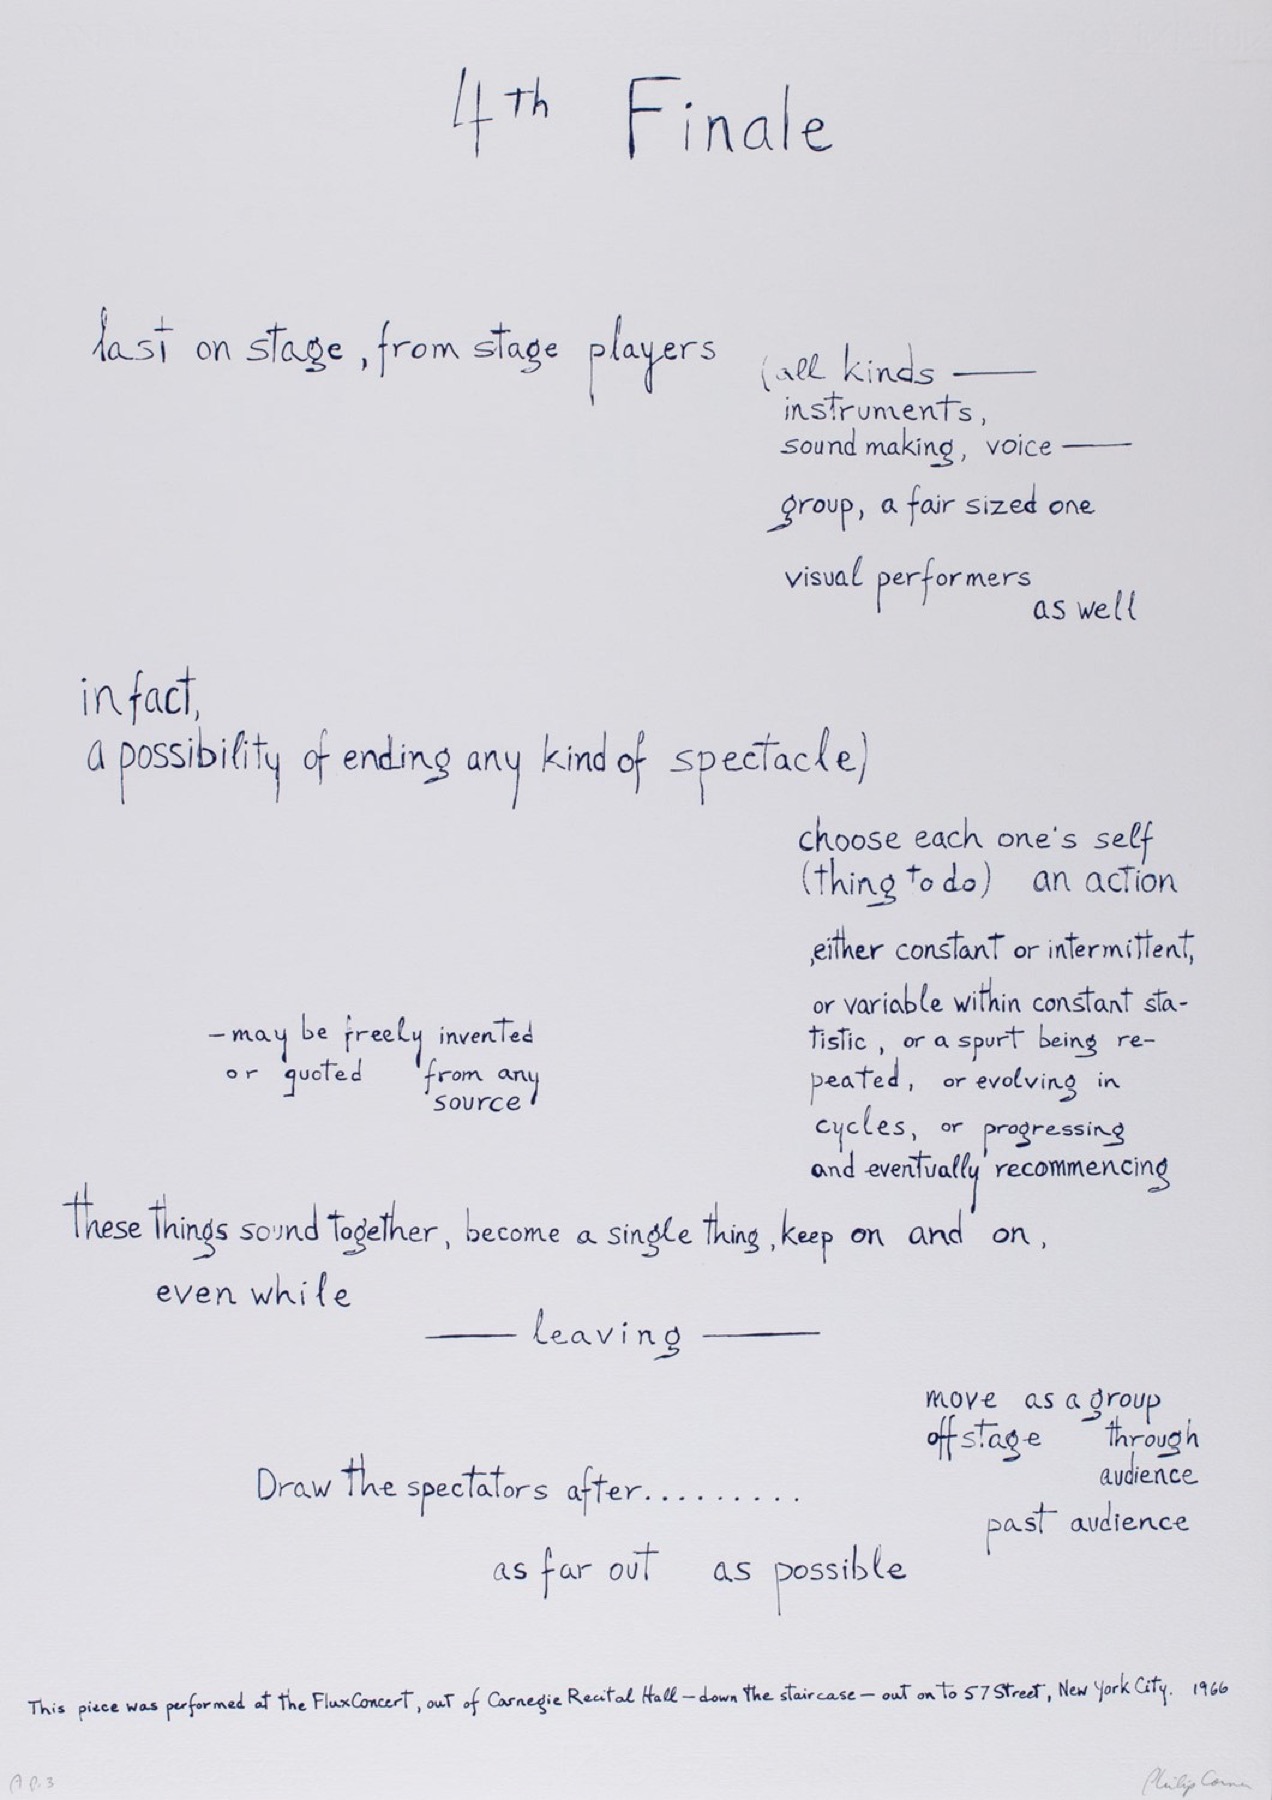 4th Finale
last on stage, from stage players
(all kinds —
instruments,
sound making, voice —
group, a fair sized one
visual performers
as well
in fact,
a possibility of ending any kind of spectacle)
choose each one's self
(thing to do) an action
,either constant or intermittent,
or variable within constant sta-
tistic, or a spurt being re-
peated, or evolving in
cycles, or progressing
and eventually recommencing
-may be freely invented
or quoted from any
source
these things sound together, become a single thing, keep on and on,
even while
— leaving —
move as a group
off stage through
audience
past audience
Draw the spectators after.........
as far out as possible
This piece was performed at the FluxConcert, out of Carnegie Recital Hall – down the staircase – out on to 57 Street, New York City. 1966
A.P. 3
Philip Corner